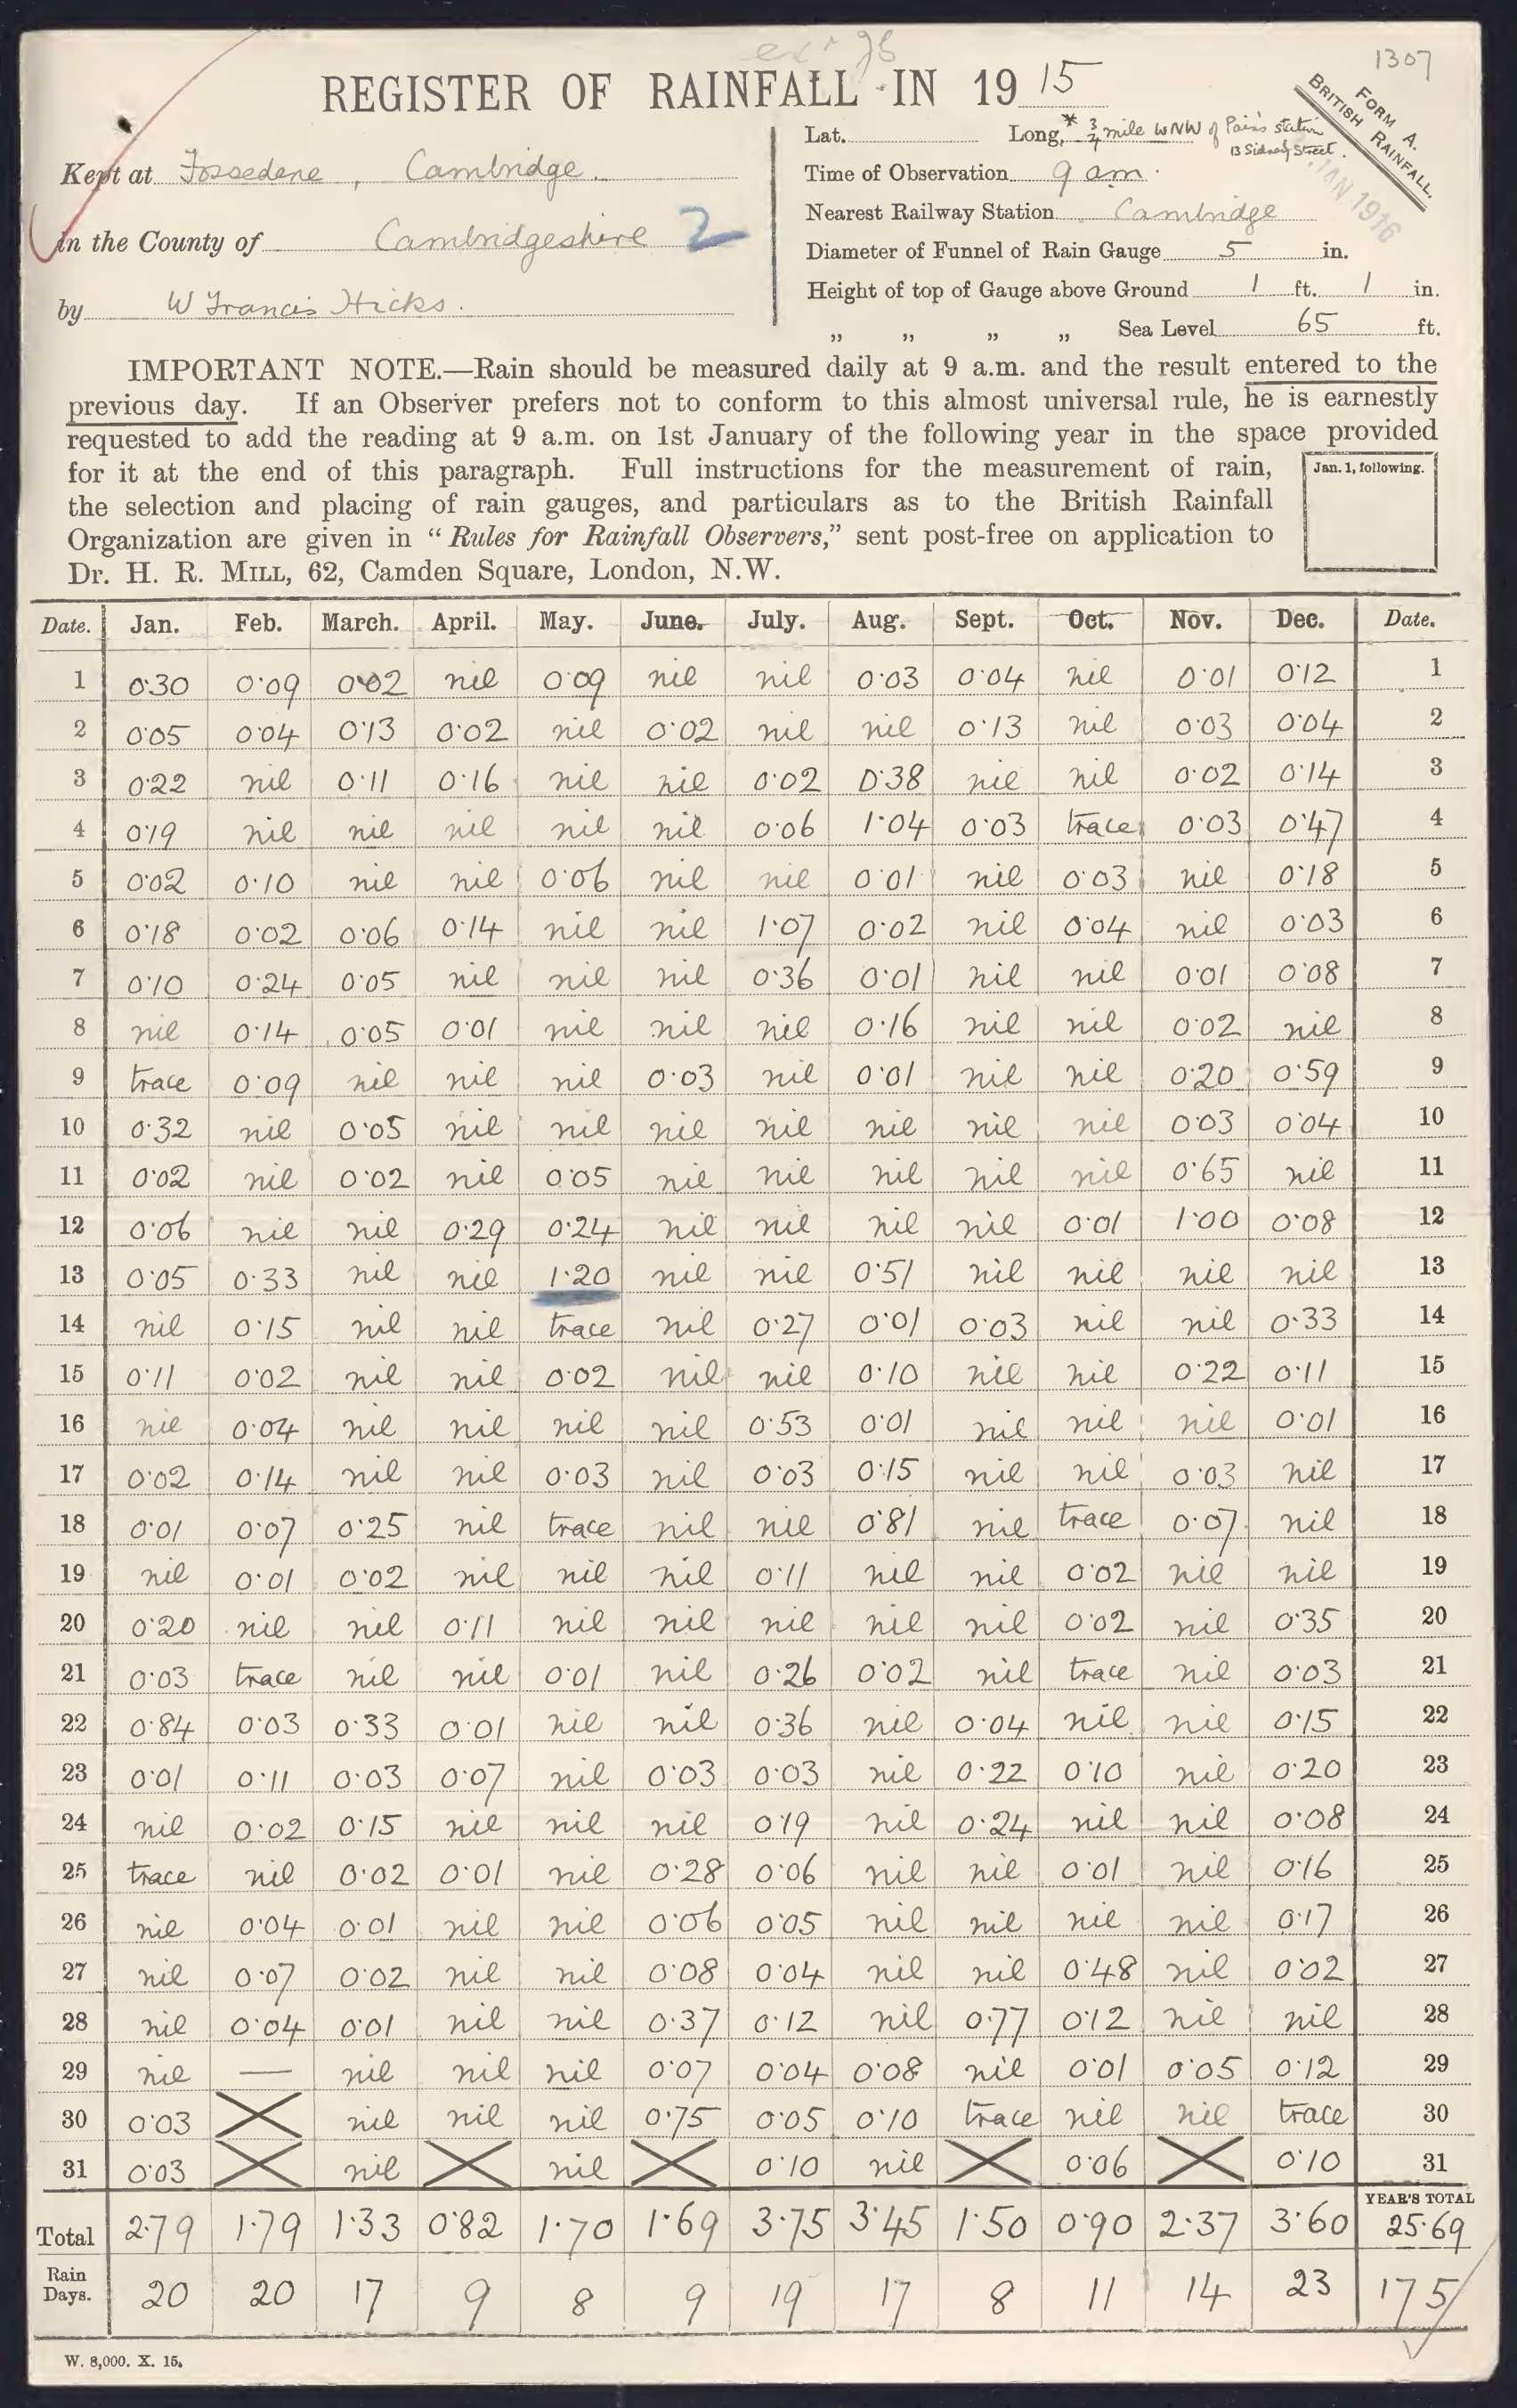 1307
REGISTER OF RAINFALL IN 1915
FORM A.
BRITISH RAINFALL.
JAN 1916
Kept at Fossedene, Cambridge.
in the County of Cambridgeshire 2
by W Francis Hicks.
Lat. Long. * 3/4 mile WNW of Pain's station
13 Sidney Street.
Time of Observation 9 am.
Nearest Railway Station Cambridge
Diameter of Funnel of Rain Gauge 5 in.
Height of top of Gauge above Ground 1 ft. 1 in.
„ „ „ „ Sea Level 65 ft.
IMPORTANT NOTE.—Rain should be measured daily at 9 a.m. and the result entered to the
previous day. If an Observer prefers not to conform to this almost universal rule, he is earnestly
requested to add the reading at 9 a.m. on 1st January of the following year in the space provided
for it at the end of this paragraph. Full instructions for the measurement of rain,
the selection and placing of rain gauges, and particulars as to the British Rainfall
Organization are given in "Rules for Rainfall Observers," sent post-free on application to
Dr. H. R. MILL, 62, Camden Square, London, N.W.
Jan. 1, following.
Date. Jan. Feb. March. April. May. June. July. Aug. Sept. Oct. Nov. Dec. Date.
1 0·30 0·09 0·02 nil 0·09 nil nil 0·03 0·04 nil 0·01 0·12 1
2 0·05 0·04 0·13 0·02 nil 0·02 nil nil 0·13 nil 0·03 0·04 2
3 0·22 nil 0·11 0·16 nil nil 0·02 0·38 nil nil 0·02 0·14 3
4 0·19 nil nil nil nil nil 0·06 1·04 0·03 trace 0·03 0·47 4
5 0·02 0·10 nil nil 0·06 nil nil 0·01 nil 0·03 nil 0·18 5
6 0·18 0·02 0·06 0·14 nil nil 1·07 0·02 nil 0·04 nil 0·03 6
7 0·10 0·24 0·05 nil nil nil 0·36 0·01 nil nil 0·01 0·08 7
8 nil 0·14 0·05 0·01 nil nil nil 0·16 nil nil 0·02 nil 8
9 trace 0·09 nil nil nil 0·03 nil 0·01 nil nil 0·20 0·59 9
10 0·32 nil 0·05 nil nil nil nil nil nil nil 0·03 0·04 10
11 0·02 nil 0·02 nil 0·05 nil nil nil nil nil 0·65 nil 11
12 0·06 nil nil 0·29 0·24 nil nil nil nil 0·01 1·00 0·08 12
13 0·05 0·33 nil nil 1·20 nil nil 0·51 nil nil nil nil 13
14 nil 0·15 nil nil trace nil 0·27 0·01 0·03 nil nil 0·33 14
15 0·11 0·02 nil nil 0·02 nil nil 0·10 nil nil 0·22 0·11 15
16 nil 0·04 nil nil nil nil 0·53 0·01 nil nil nil 0·01 16
17 0·02 0·14 nil nil 0·03 nil 0·03 0·15 nil nil 0·03 nil 17
18 0·01 0·07 0·25 nil trace nil nil 0·81 nil trace 0·07 nil 18
19 nil 0·01 0·02 nil nil nil 0·11 nil nil 0·02 nil nil 19
20 0·20 nil nil 0·11 nil nil nil nil nil 0·02 nil 0·35 20
21 0·03 trace nil nil 0·01 nil 0·26 0·02 nil trace nil 0·03 21
22 0·84 0·03 0·33 0·01 nil nil 0·36 nil 0·04 nil nil 0·15 22
23 0·01 0·11 0·03 0·07 nil 0·03 0·03 nil 0·22 0·10 nil 0·20 23
24 nil 0·02 0·15 nil nil nil 0·19 nil 0·24 nil nil 0·08 24
25 trace nil 0·02 0·01 nil 0·28 0·06 nil nil 0·01 nil 0·16 25
26 nil 0·04 0·01 nil nil 0·06 0·05 nil nil nil nil 0·17 26
27 nil 0·07 0·02 nil nil 0·08 0·04 nil nil 0·48 nil 0·02 27
28 nil 0·04 0·01 nil nil 0·37 0·12 nil 0·77 0·12 nil nil 28
29 nil — nil nil nil 0·07 0·04 0·08 nil 0·01 0·05 0·12 29
30 0·03 nil nil nil 0·75 0·05 0·10 trace nil nil trace 30
31 0·03 nil nil 0·10 nil 0·06 0·10 31
YEAR'S TOTAL
Total 2·79 1·79 1·33 0·82 1·70 1·69 3·75 3·45 1·50 0·90 2·37 3·60 25·69
Rain Days. 20 20 17 9 8 9 19 17 8 11 14 23 175
W. 8,000. X. 15.